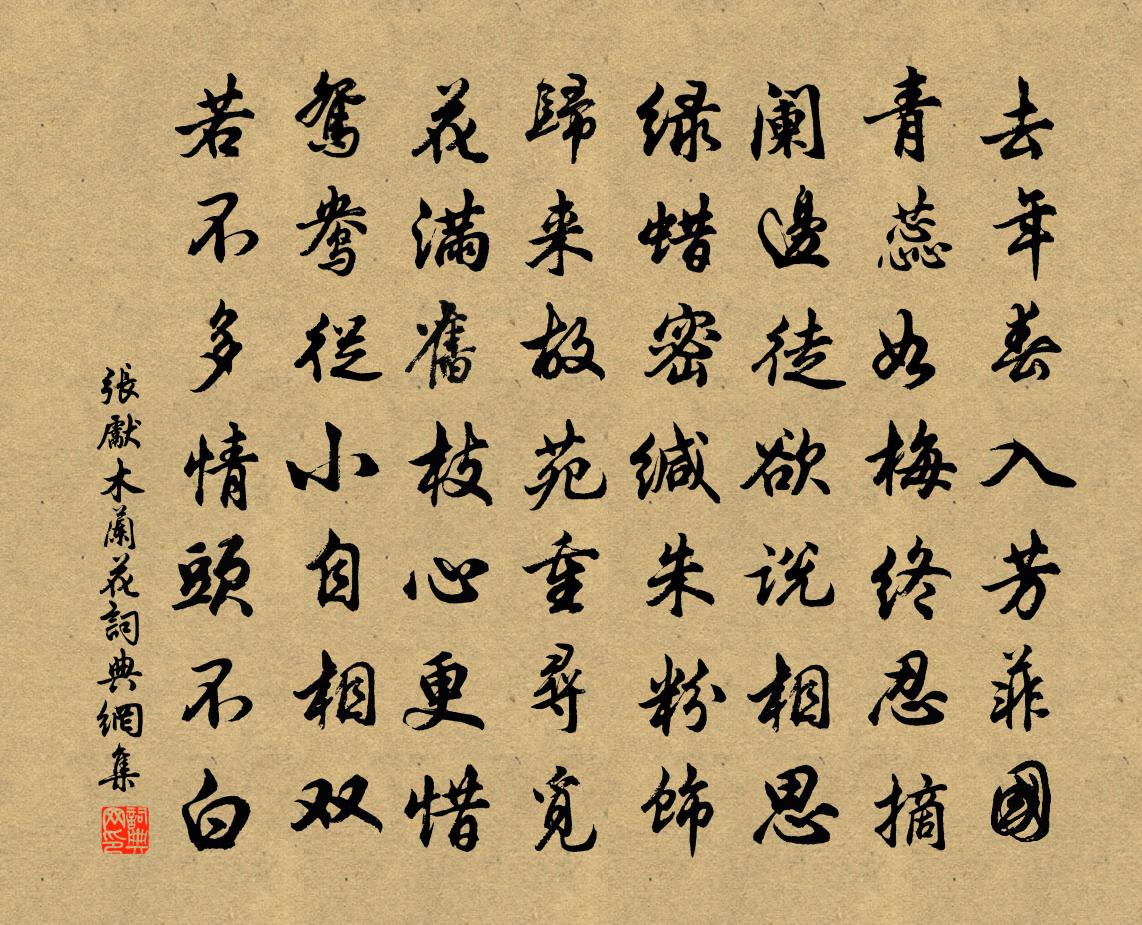 去年春入芳菲國
青蕊如梅終忍摘
阑邊徒欲说相思
绿蜡密缄朱粉飾
歸来故苑重尋覓
花满舊枝心更惜
鸳鸯從小自相双
若不多情頭不白
張獻木蘭花詞典網集
詞典网印